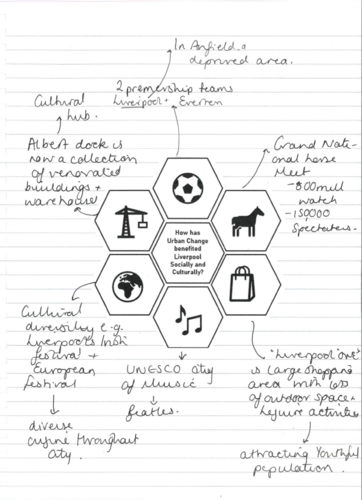 In Anfield a
deprived area.
2 premership teams
Liverpool + Everton
Cultural
hub.
Albert dock is
now a collection
of renovated
buildings +
warehouses
Grand Nate-
onal horse
Meet
- 800 mill
watch
- 150000
Spectaters.
How has
Urban Change
benefited
Liverpool
Socially and
Culturally?
Cultural
diversity e.g.
Liverpools Irish
festival +
European
festival
diverse
cuisine throughout
city.
UNESCO city
of Music
Beatles.
"Liverpool one"
is large shopping
area with lots
of outdoor space +
leisure activities
attracting Youthful
population.